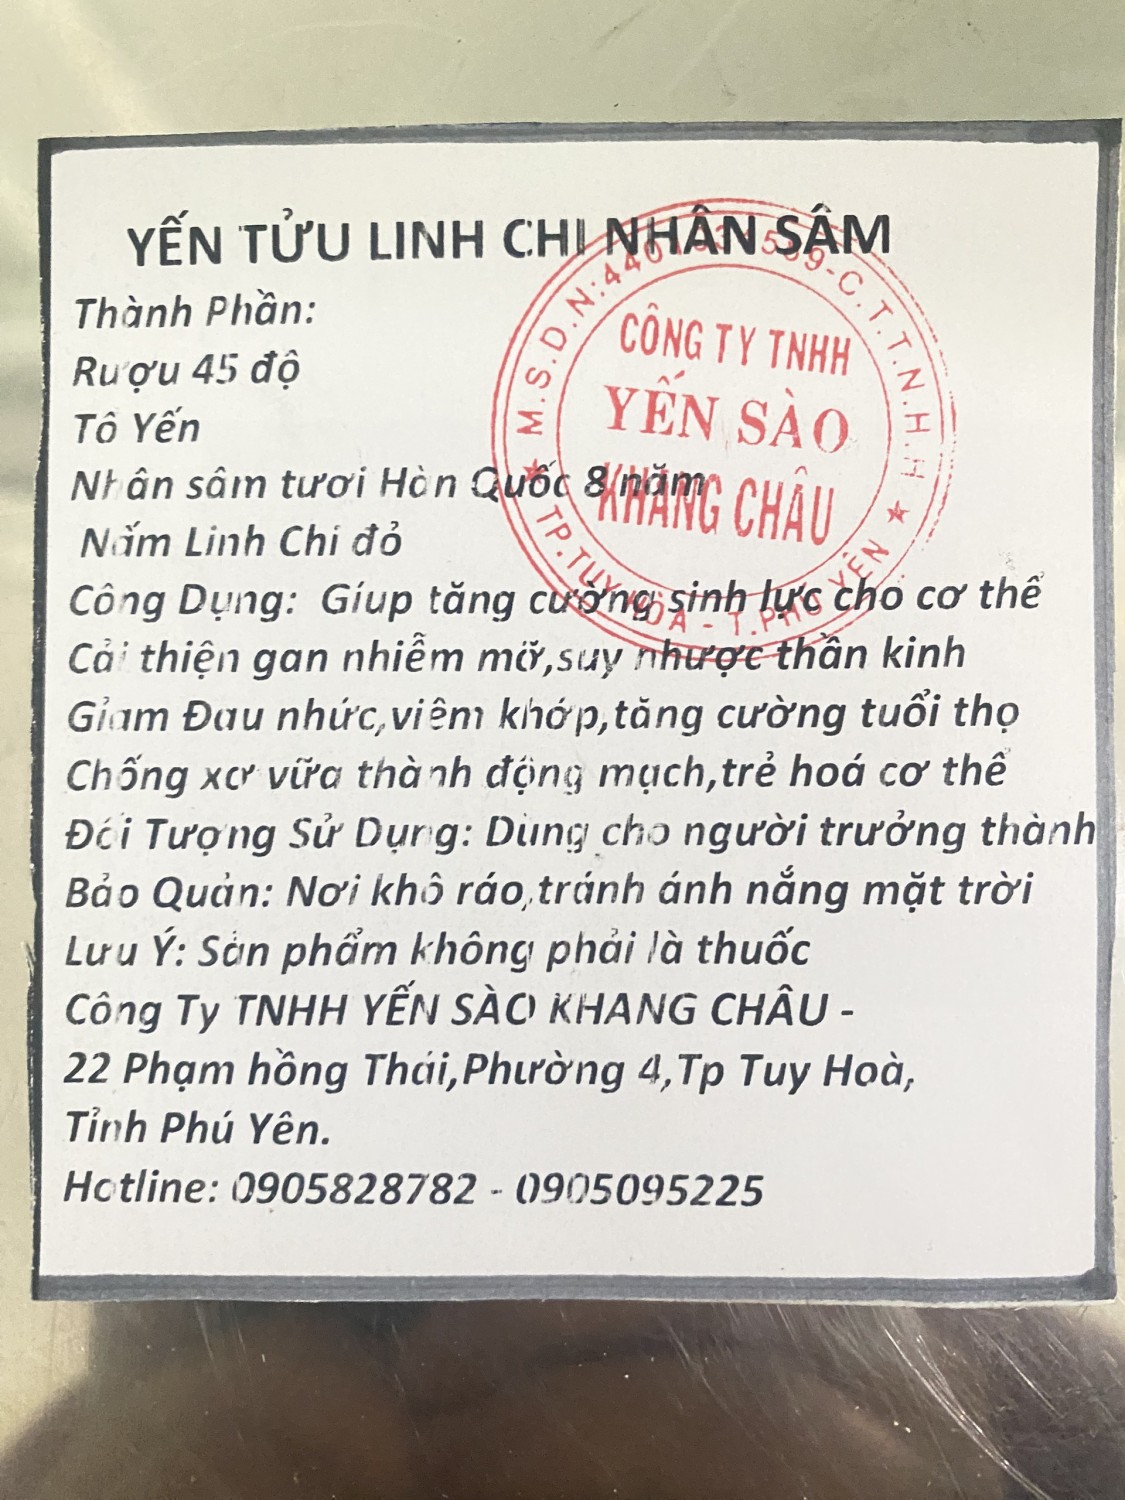 YẾN TỬU LINH CHI NHÂN SÂM
Thành Phần:
Rượu 45 độ
Tô Yến
Nhân sâm tươi Hàn Quốc 8 năm
Nấm Linh Chi đỏ
Công Dụng: Gíup tăng cường sinh lực cho cơ thể
Cải thiện gan nhiễm mỡ,suy nhược thần kinh
Giảm Đau nhức,viêm khớp,tăng cường tuổi thọ
Chống xơ vữa thành động mạch,trẻ hoá cơ thể
Đối Tượng Sử Dụng: Dùng cho người trưởng thành
Bảo Quản: Nơi khô ráo,tránh ánh nắng mặt trời
Lưu Ý: Sản phẩm không phải là thuốc
Công Ty TNHH YẾN SÀO KHANG CHÂU -
22 Phạm hồng Thái,Phường 4,Tp Tuy Hoà,
Tỉnh Phú Yên.
Hotline: 0905828782 - 0905095225
CÔNG TY TNHH
YẾN SÀO
KHANG CHÂU
M.S.D.N: C.T.T.N.H.H
TP.TUY HÒA - T.PHÚ YÊN